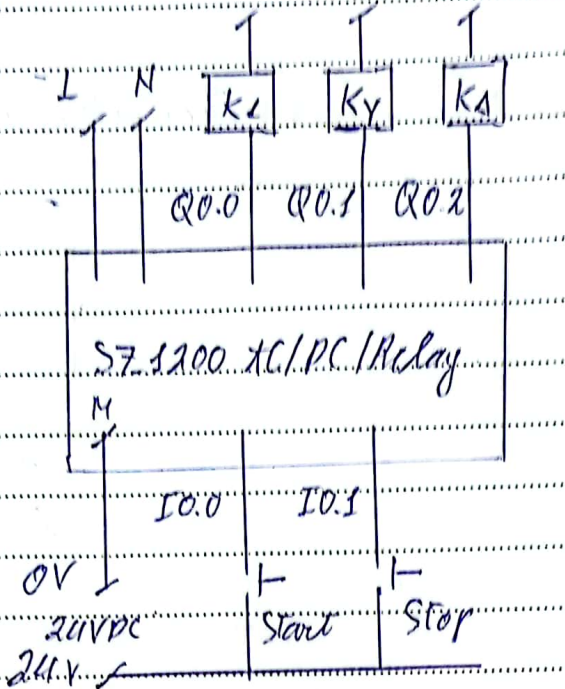 L N K1 KY KΔ
Q0.0 Q0.1 Q0.2
S7.1200 AC/DC/Relay
M
I0.0 I0.1
0V
24VDC Start Stop
24V